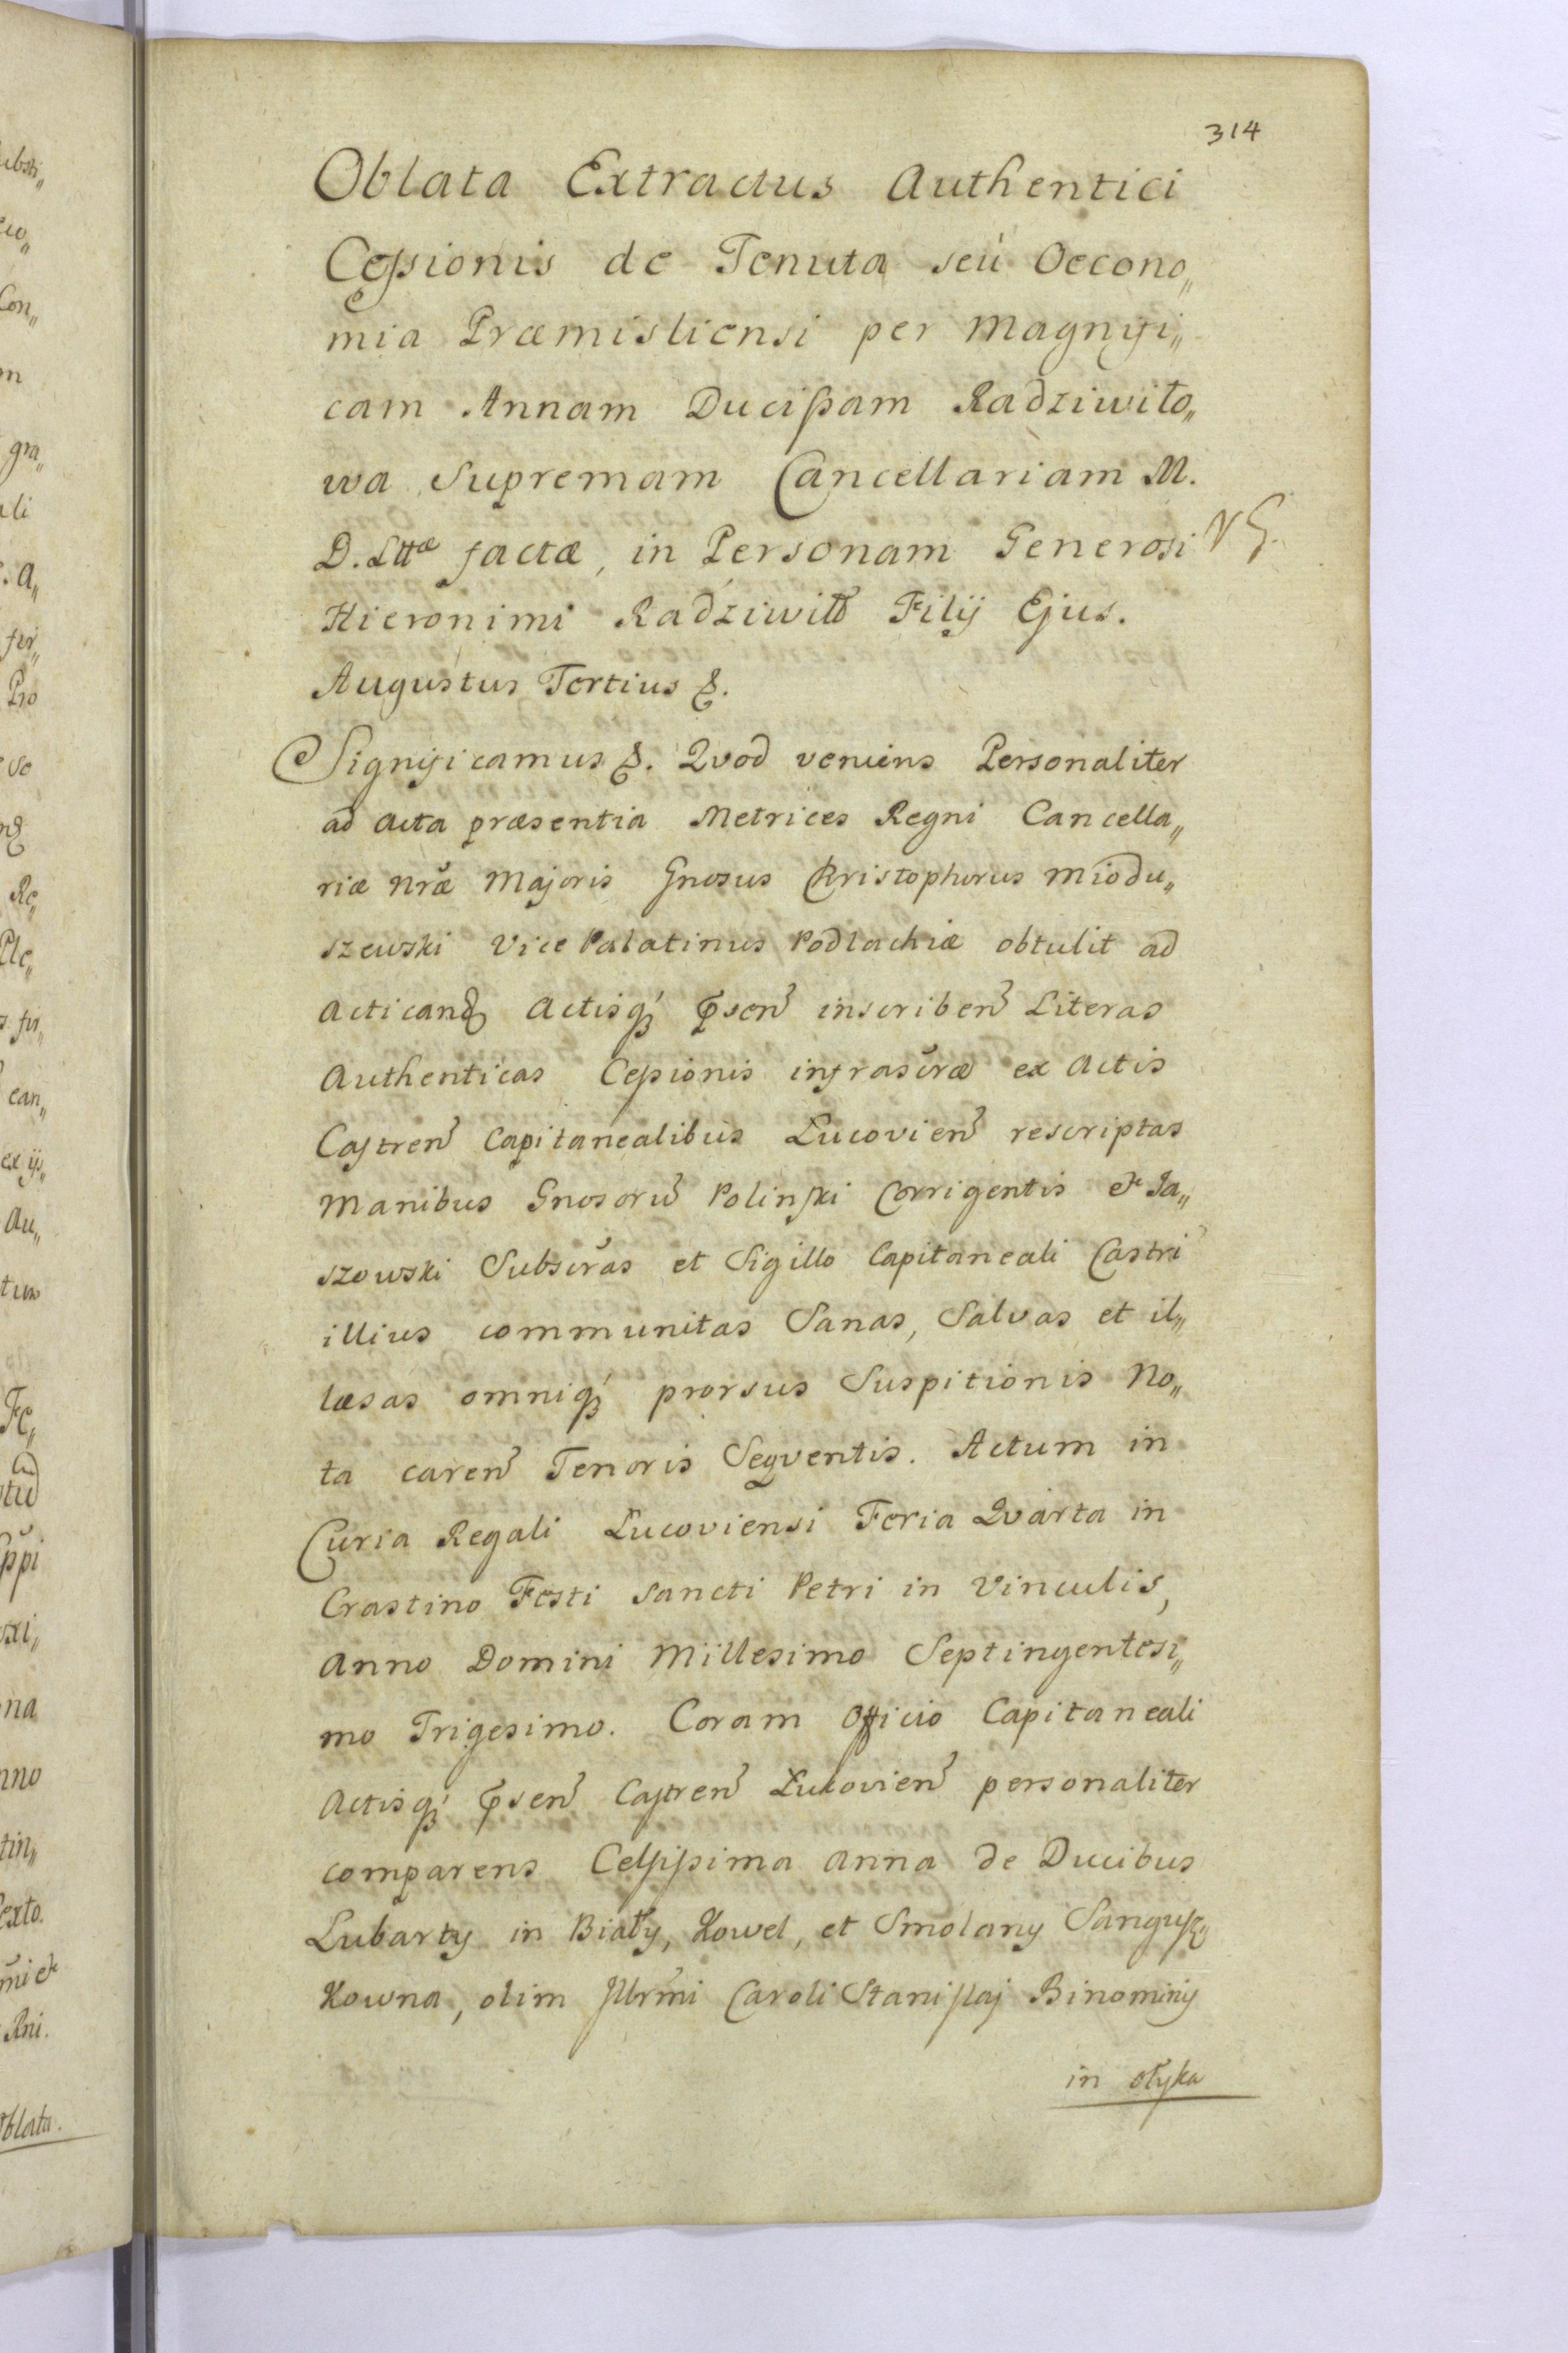 314
Oblata Extractus Authentici
Cessionis de Tenuta seù Oecono„
mia Præmisliensi per Magnifi„
cam Annam Ducissam Radziwiło„
wa Supremam Cancellariam M.
D. Lttæ factæ, in Personam Generosi
Hieronimi Radziwiłł Filij Ejus.
Augustus Tertius &.
Significamus &. Qvod veniens Personaliter
ad Acta præsentia Metrices Regni Cancella„
riæ Nræ Majoris Gnosus Christophorus Miodu„
szewski Vice Palatinus Podlachiæ obtulit ad
Acticand Actisq́ꝫ p̃sen̄ inscriben̄ Literas
Authenticas Cessionis infrascr̃æ ex Actis
Castren̄ Capitanealibus Lucovien̄ rescriptas
Manibus Gnosorū Polinski Corrigentis et Ja„
szowski Subscr̃as et Sigillo Capitaneali Castri
illius communitas Sanas, Salvas et il„
læsas omniq́ꝫ prorsus Suspitionis No„
ta caren̄ Tenoris Seqventis. Actum in
Curia Regali Lucoviensi Feria Qvarta in
Crastino Festi Sancti Petri in Vinculis,
Anno Domini Millesimo Septingentesi„
mo Trigesimo. Coram Officio Capitaneali
Actisq́ꝫ p̃sen̄ Castren̄ Lukovien̄ personaliter
comparens Celsissima Anna de Ducibus
Lubarty in Biały, Kowel, et Smolany Sangusz„
Kowna, olim Illrm̃i Caroli Stanislaj Binominij
in ołyka